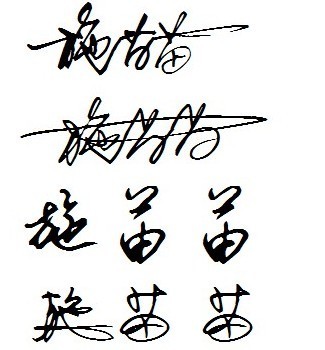 施苗苗
施苗苗
施苗苗
施苗苗